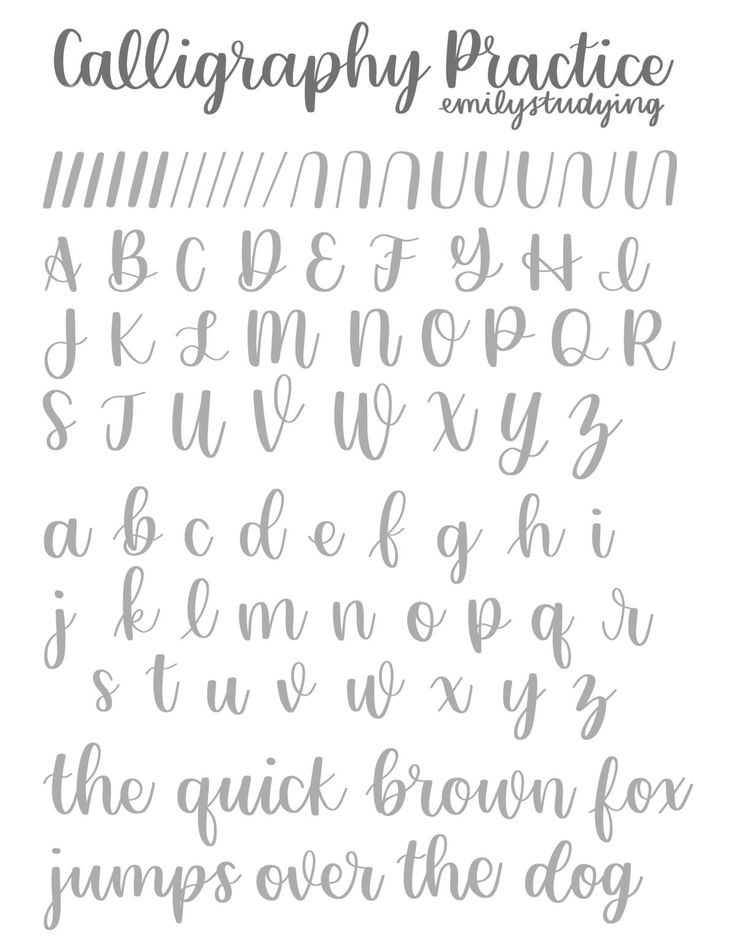 Calligraphy Practice
emilystudying
A B C D E F G H I
J K L M N O P Q R
S T U V W X Y Z
a b c d e f g h i
j k l m n o p q r
s t u v w x y z
the quick brown fox
jumps over the dog